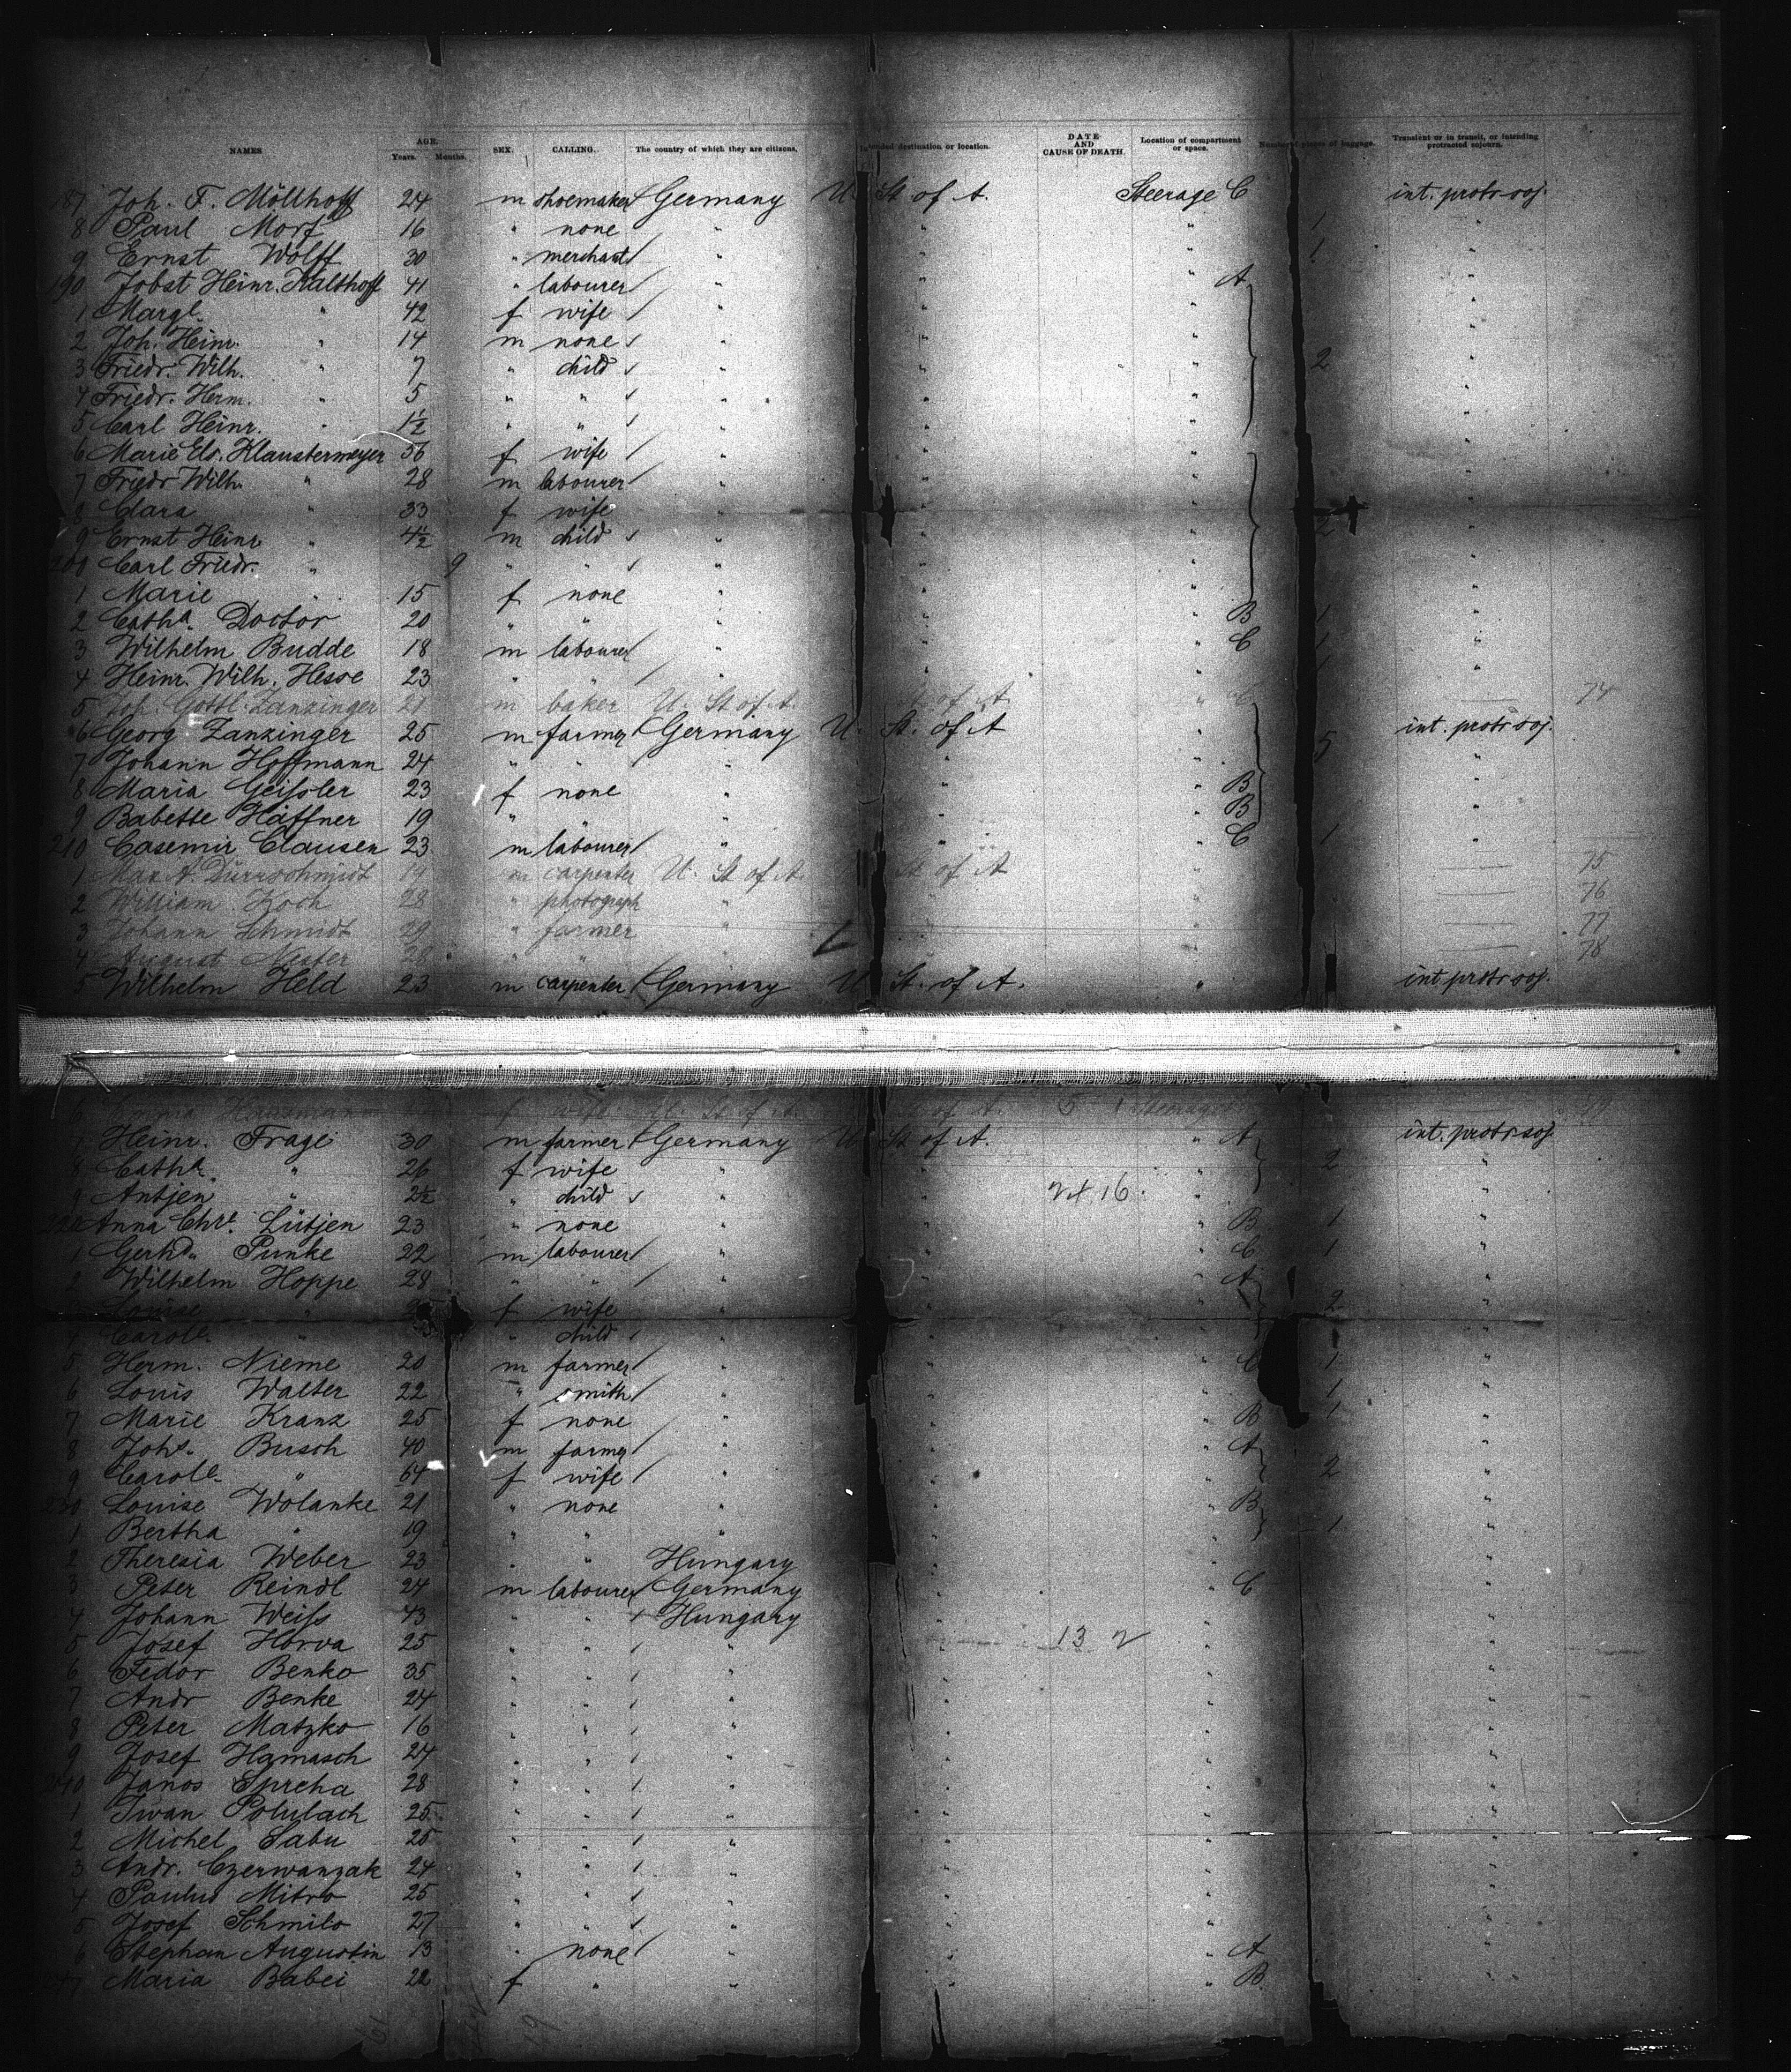 NAMES AGE. Years. Months. SEX. CALLING. The country of which they are citizens. Intended destination or location. DATE AND CAUSE OF DEATH. Location of compartment or space. Number of pieces of baggage. Transient or in transit, or intending protracted sojourn.
187 Joh. F. Möllhoff 24 m shoemaker Germany U. St of A. Steerage C int. protr soj.
8 Paul Morf 16 " none " " " 1 "
9 Ernst Wolff 30 " merchant " " " 1 "
190 Jobst Heinr. Kalthoff 41 " labourer " " " A "
1 Margt. " 42 f wife " " " "
2 Joh. Heinr. " 14 m none " " " "
3 Friedr. Wilh. " 7 " child " " " 2 "
4 Friedr. Herm. " 5 " " " " " "
5 Carl Heinr. " 1½ " " " " " "
6 Marie Els. Klaustermeyer 56 f wife " " " "
7 Friedr Wilh. " 28 m labourer " " " "
8 Clara " 33 f wife " " " "
9 Ernst Heinr " 4½ m child " " " 2 "
200 Carl Friedr. " 9 " " " " " "
1 Marie " 15 f none " " " "
2 Catha. Doctor 20 " " " " " B 1 "
3 Wilhelm Budde 18 m labourer " " " C 1 "
4 Heinr. Wilh. Hesse 23 " " " " " 1 "
5 Joh. Gottl. Zanzinger 21 m baker U. St of A. St of A. " C 74
6 Georg Zanzinger 25 m farmer Germany U. St. of A " int. protr soj.
7 Johann Hoffmann 24 " " " " " 5 "
8 Maria Geißler 23 f none " " " B "
9 Babette Häffner 19 " " " " " B "
210 Casemir Clausen 23 m labourer " " " C 1 "
1 Max A. Dürrschmidt 19 m carpenter U. St of A. St of A 75
2 William Koch 28 " photograph " " 76
3 Johann Schmidt 29 " farmer " " 77
4 August 28 " " " " 78
5 Wilhelm Held 23 m carpenter Germany U. St. of A. " int protr soj.
6 f wife U. St of A. St of A. Steerage
7 Heinr. Frage 30 m farmer Germany U. St of A. " A int. protr soj
8 Catha. " 26 f wife " " " 2 "
9 Antjen " 2½ " child " " 16. " "
220 Anna Chre. Lütjen 23 " none " " " B 1 "
1 Gerhd. Punke 22 m labourer " " " C 1 "
2 Wilhelm Hoppe 28 " " " " " A "
Louise " f wife " " " 2 "
4 Carole. " " child " " " "
5 Herm. Nieme 20 m farmer " " " C 1 "
6 Louis Walter 22 " smith " " " 1 "
7 Marie Kranz 25 f none " " " B 1 "
8 Johs. Busch 40 m farmer " " " A "
9 Carole. " 64 f wife " " " 2 "
230 Louise Wolanke 21 " none " " " B "
1 Bertha " 19 " " " " " 1 "
2 Theresia Weber 23 " " Hungary " " "
3 Peter Reindl 24 m labourer Germany " " C "
4 Johann Weiß 43 " " Hungary " " "
5 Josef Horva 25 " " " " 13 " "
6 Fedor Benko 35 " " " " " "
7 Andr Benke 24 " " " " " "
8 Peter Matzko 16 " " " " " "
9 Josef Hamasch 24 " " " " " "
240 Janos Spreha 28 " " " " " "
1 Iwan Polulach 25 " " " " " "
2 Michel Sabu 25 " " " " " "
3 Andr. Czerwanzak 24 " " " " " "
4 Paulus Mitro 25 " " " " " "
5 Josef Schmilo 27 " " " " " "
6 Stephan Augustin 13 " none " " " A "
247 Maria Babei 22 f " " " " B "